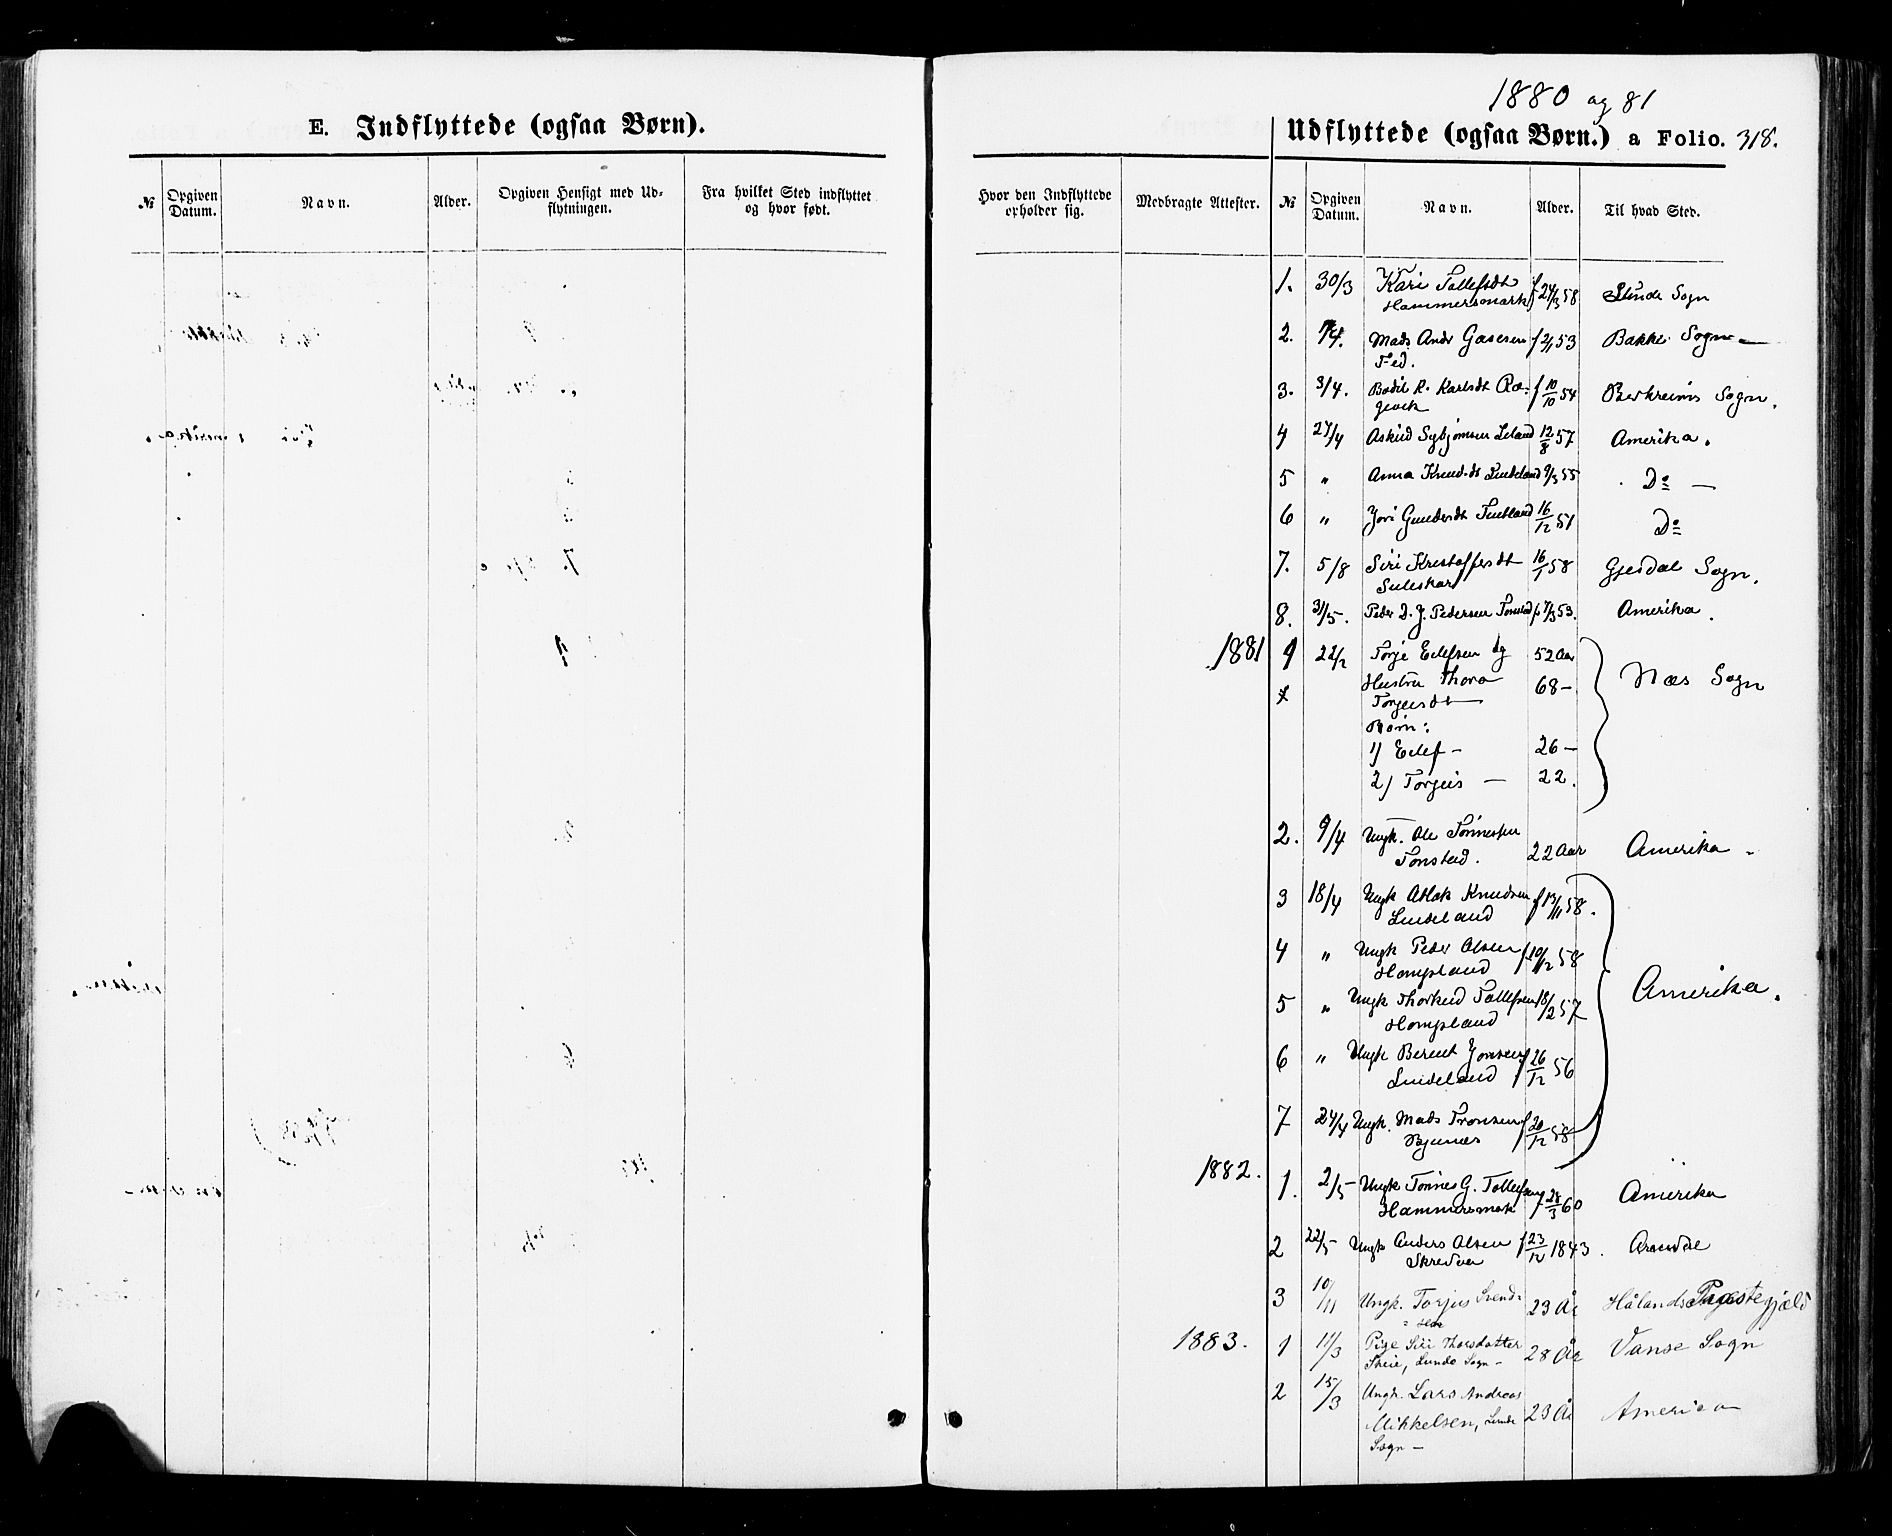 1880 og 81
E. Indflyttede (ogsaa Børn).
Udflyttede (ogsaa Børn.) a Folio. 318.
№ Opgiven Datum. Navn. Alder. Opgiven Hensigt med Udflytningen. Fra hvilket Sted indflyttet og hvor født.
Hvor den Indflyttede opholder sig. Medbragte Attester. № Opgiven Datum. Navn. Alder. Til hvad Sted.
1. 30/3 Kari Tallefsdt f 24/3 58 Lunde Sogn
Hammersmark
2. Mads Andr Gasesen f 2/1 53 Bakke Sogn
Fed.
3. 3/4. Bodil R. Karlsdt Ræ- f 10/10 54 Berkreims Sogn.
gevik
4 27/4 Askild Sybjørnsen Leland 12/8 57 Amerika.
5 " Anna Knudsdt Lindeland 9/3 55 Do —
6 " Jori Gundersdt 16/12 51 Do
7. 5/8 Siri Kristoffersdt 16/1 58 Gjesdal Sogn.
Suleskar
8. 31/5. Peder D. J. Pedersen Tonstad f 7/3 53. Amerika.
1881 1 22/2 Torje Eilefsen og 52 Aar Næs Sogn
Hustru Thora 68 —
Torjusdt
Børn:
1) Eilef — 26 —
2) Torjus — 22.
2. 9/4 Ungk. Ole Tønnesen 22 Aar Amerika
Tonstad.
3 18/4 Ungk Atlak Knudsen f 19/11 58. Amerika.
Lindeland
4 " Ungk Peder Olsen f 10/12 58
Hompland
5 " Ungk Thorkild Tallefsen 18/2 57
Hompland
6 " Ungk Berent Jonsen f 26/12 56
Lindeland
7 24/4 Ungk. Mads Tronsen f 20/12 58
Bjunes
1882. 1. 2/5 Ungk Tønnes G. Tallefsen f 28/3 60 Amerika
Hammersmak
2 22/5 Ungk Anders Olsen f 23/12 1843. Arendal
Skredvea
3 10/11 Ungk. Torjus Svend- 23 År Hålands Præstegjæld
1883. 1 11/3 Pige Siri Thorsdatter 28 År Vanse Sogn
Skeie, Lunde Sogn —
2 15/3 Ungk. Lars Andreas 23 År America
Mikkelsen, Lunde
Sogn —